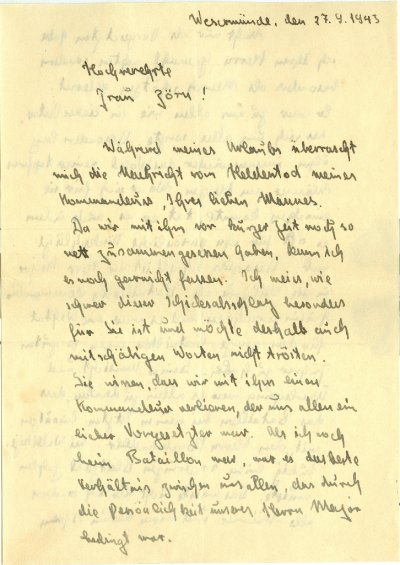 Wesermünde, den 27.4.1943
Hochverehrte
Frau Zörn!
Während meines Urlaubs überrascht
mich die Nachricht vom Heldentod meines
Kommandeurs, Ihres lieben Mannes.
Da wir mit ihm vor kurzer Zeit noch so
nett zusammengesessen haben, kann ich
es noch gar nicht fassen. Ich weiss, wie
schwer dieser Schicksalsschlag besonders
für Sie ist und möchte deshalb auch
mit schäbigen Worten nicht trösten.
Sie wissen, dass wir mit ihm einen
Kommandeur verlieren, der uns allen ein
lieber Vorgesetzter war. Als ich noch
beim Bataillon war, war es das beste
Verhältnis zwischen uns allen, das durch
die Persönlichkeit unseres Herrn Major
bedingt war.